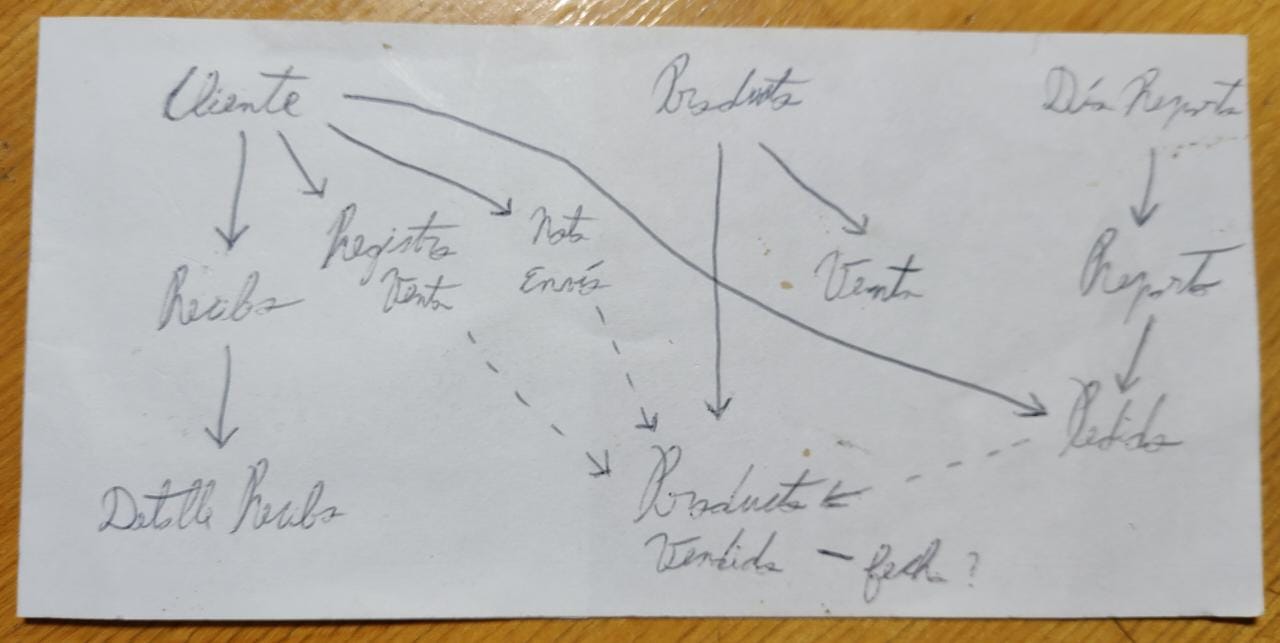 Cliente
Producto
Día Reporto
Registro
Venta
Nota
Envío
Venta
Reporto
Recibo
Pedido
Detalle Recibo
Producto
Vendido — fecha?